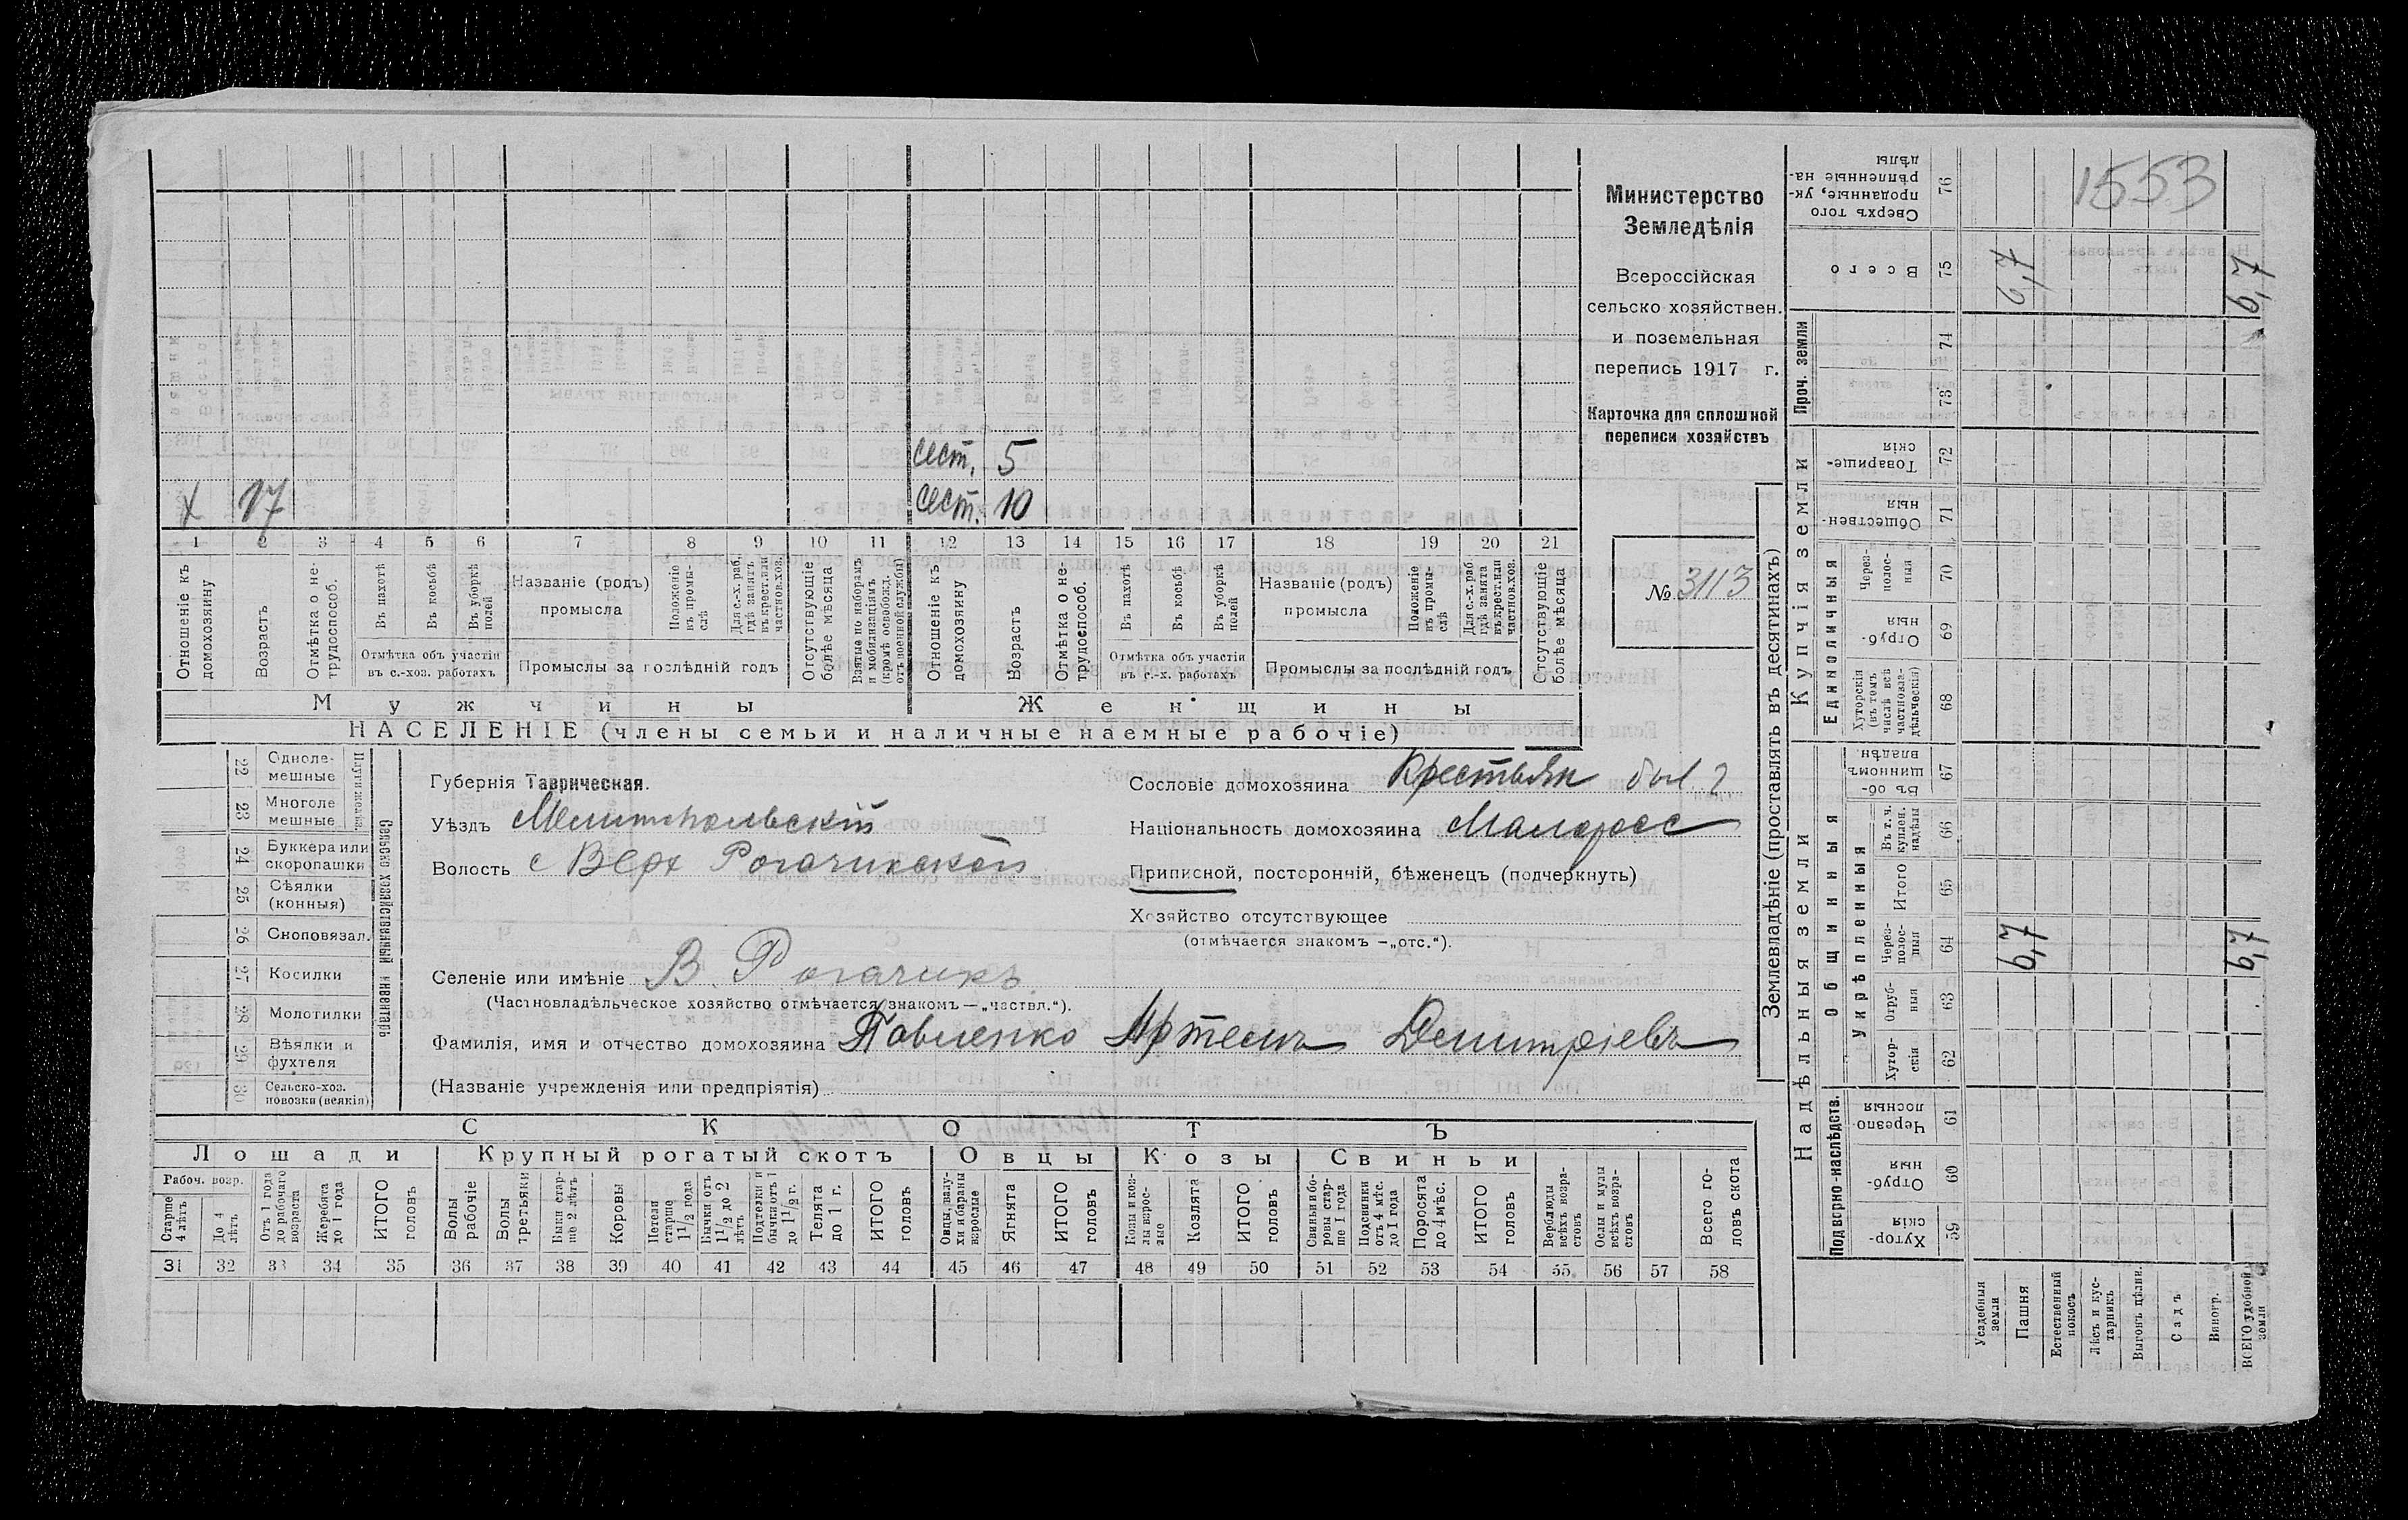 Министерство
Земледѣлія
Всероссійская
сельско хозяйствен.
и поземельная
перепись 1917 г.
Карточка для сплошной
переписи хозяйствъ
№ 3113
1553
сест. 5
х 17 сест. 10
1 2 3 4 5 6 7 8 9 10 11 12 13 14 15 16 17 18 19 20 21
Отношеніе къ домохозяину
Возрастъ
Отмѣтка о нетрудоспособ.
Въ пахотѣ
Въ косьбѣ
Въ уборкѣ полей
Отмѣтка объ участіи
въ с.-хоз. работахъ
Названіе (родъ)
промысла
Положеніе въ промыслѣ
Для с.-х. раб. гдѣ занятъ въ крест. или частнов. хоз.
Промыслы за послѣдній годъ
Отсутствующіе болѣе мѣсяца
Взятые по наборамъ и мобилизаціямъ (кромѣ освобожд. отъ военной службы)
Отношеніе къ домохозяину
Возрастъ
Отмѣтка о нетрудоспособ.
Въ пахотѣ
Въ косьбѣ
Въ уборкѣ полей
Отмѣтка объ участіи
въ с.-х. работахъ
Названіе (родъ)
промысла
Положеніе въ промыслѣ
Для с.-х. раб. гдѣ занята въ крест. или частнов. хоз.
Промыслы за послѣдній годъ
Отсутствующіе болѣе мѣсяца
Мужчины Женщины
НАСЕЛЕНІЕ (члены семьи и наличные наемные рабочіе)
Сельско хозяйственный инвентарь
Плуги желѣз.
22 Одноле-
мешные
23 Многоле
мешные
24 Буккера или
скоропашки
25 Сѣялки
(конныя)
26 Сноповязал.
27 Косилки
28 Молотилки
29 Вѣялки и
фухтеля
30 Сельско-хоз.
повозки (всякія)
Губернія Таврическая.
Уѣздъ Мелитопольскій
Волость с Верх Рогачикской
Селеніе или имѣніе В. Рогачикъ
(Частновладѣльческое хозяйство отмѣчается знакомъ — „частвл.“).
Фамилія, имя и отчество домохозяина Павленко Артемъ Дмитріевъ
(Названіе учрежденія или предпріятія)
Сословіе домохозяина Крестьян
Національность домохозяина Малоросс
Приписной, посторонній, бѣженецъ (подчеркнуть)
Хозяйство отсутствующее
(отмѣчается знакомъ —„отс.“).
СКОТЪ
Лошади Крупный рогатый скотъ Овцы Козы Свиньи
Рабоч. возр.
Старше 4 лѣтъ
До 4 лѣтъ
Отъ 1 года до рабочаго возраста
Жеребята до 1 года
ИТОГО головъ
Волы рабочіе
Волы третьяки
Быки старше 2 лѣтъ
Коровы
Нетели старше 1 1/2 года
Бычки отъ 1 1/2 до 2 лѣтъ
Подтелки и бычки отъ 1 до 1 1/2 г.
Телята до 1 г.
ИТОГО головъ
Овцы, валухи и бараны взрослые
Ягнята
ИТОГО головъ
Козы и козлы взрослые
Козлята
ИТОГО головъ
Свиньи и боровы старше 1 года
Подсвинки отъ 4 мѣс. до 1 года
Поросята до 4 мѣс.
ИТОГО головъ
Верблюды всѣхъ возрастовъ
Ослы и мулы всѣхъ возрастовъ
Всего головъ скота
31 32 33 34 35 36 37 38 39 40 41 42 43 44 45 46 47 48 49 50 51 52 53 54 55 56 57 58
Землевладѣніе (проставлять въ десятинахъ)
Надѣльныя земли
Купчія земли
Подворно-наслѣдств.
Общинныя
Укрѣпленныя
Единоличныя
Проч. земли
Хуторскія 59
Отрубныя 60
Черезполосныя 61
Хуторскія 62
Отрубныя 63
Черезполосныя 64
Итого 65
Въ т. ч. куплен. надѣлы 66
Въ общинномъ владѣн. 67
Хуторскія (въ томъ числѣ всѣ частновладѣльческія) 68
Отрубныя 69
Черезполосныя 70
Общественныя 71
Товарищескія 72
73
74
Всего 75
Сверхъ того проданные, укрѣпленные надѣлы 76
Усадебныя земли
Пашня 6,7 6,7
Естественный покосъ
Лѣсъ и кустарникъ
Выгонъ цѣлин.
Садъ
Виногр.
ВСЕГО удобной земли 6,7 6,7